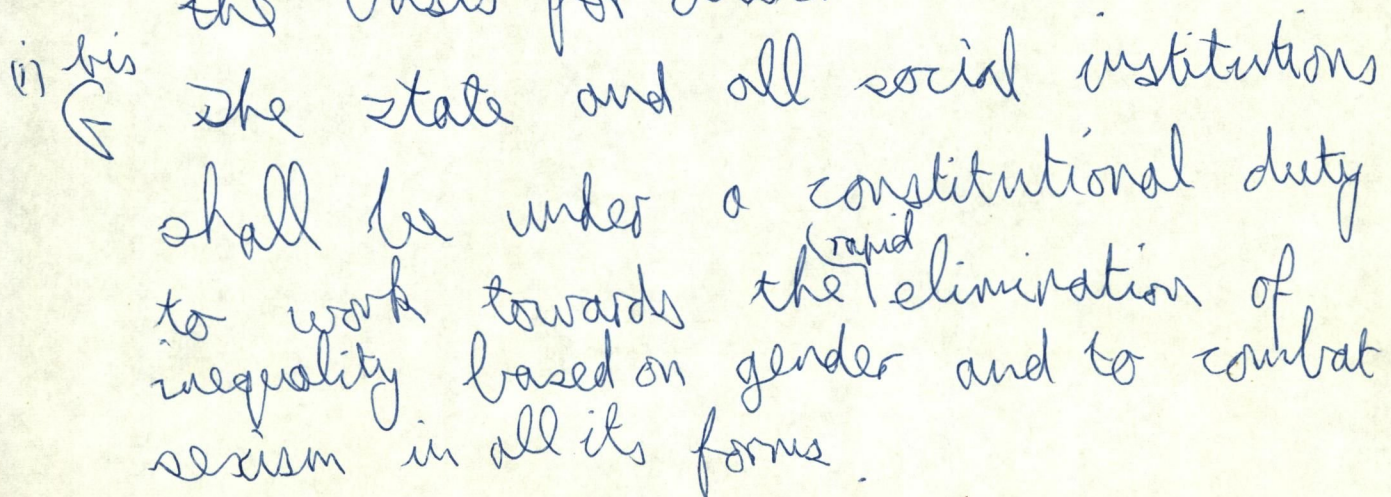 the basis for
(i) bis
G The state and all social institutions
shall be under a constitutional duty
to work towards the rapid elimination of
inequality based on gender and to combat
sexism in all its forms.